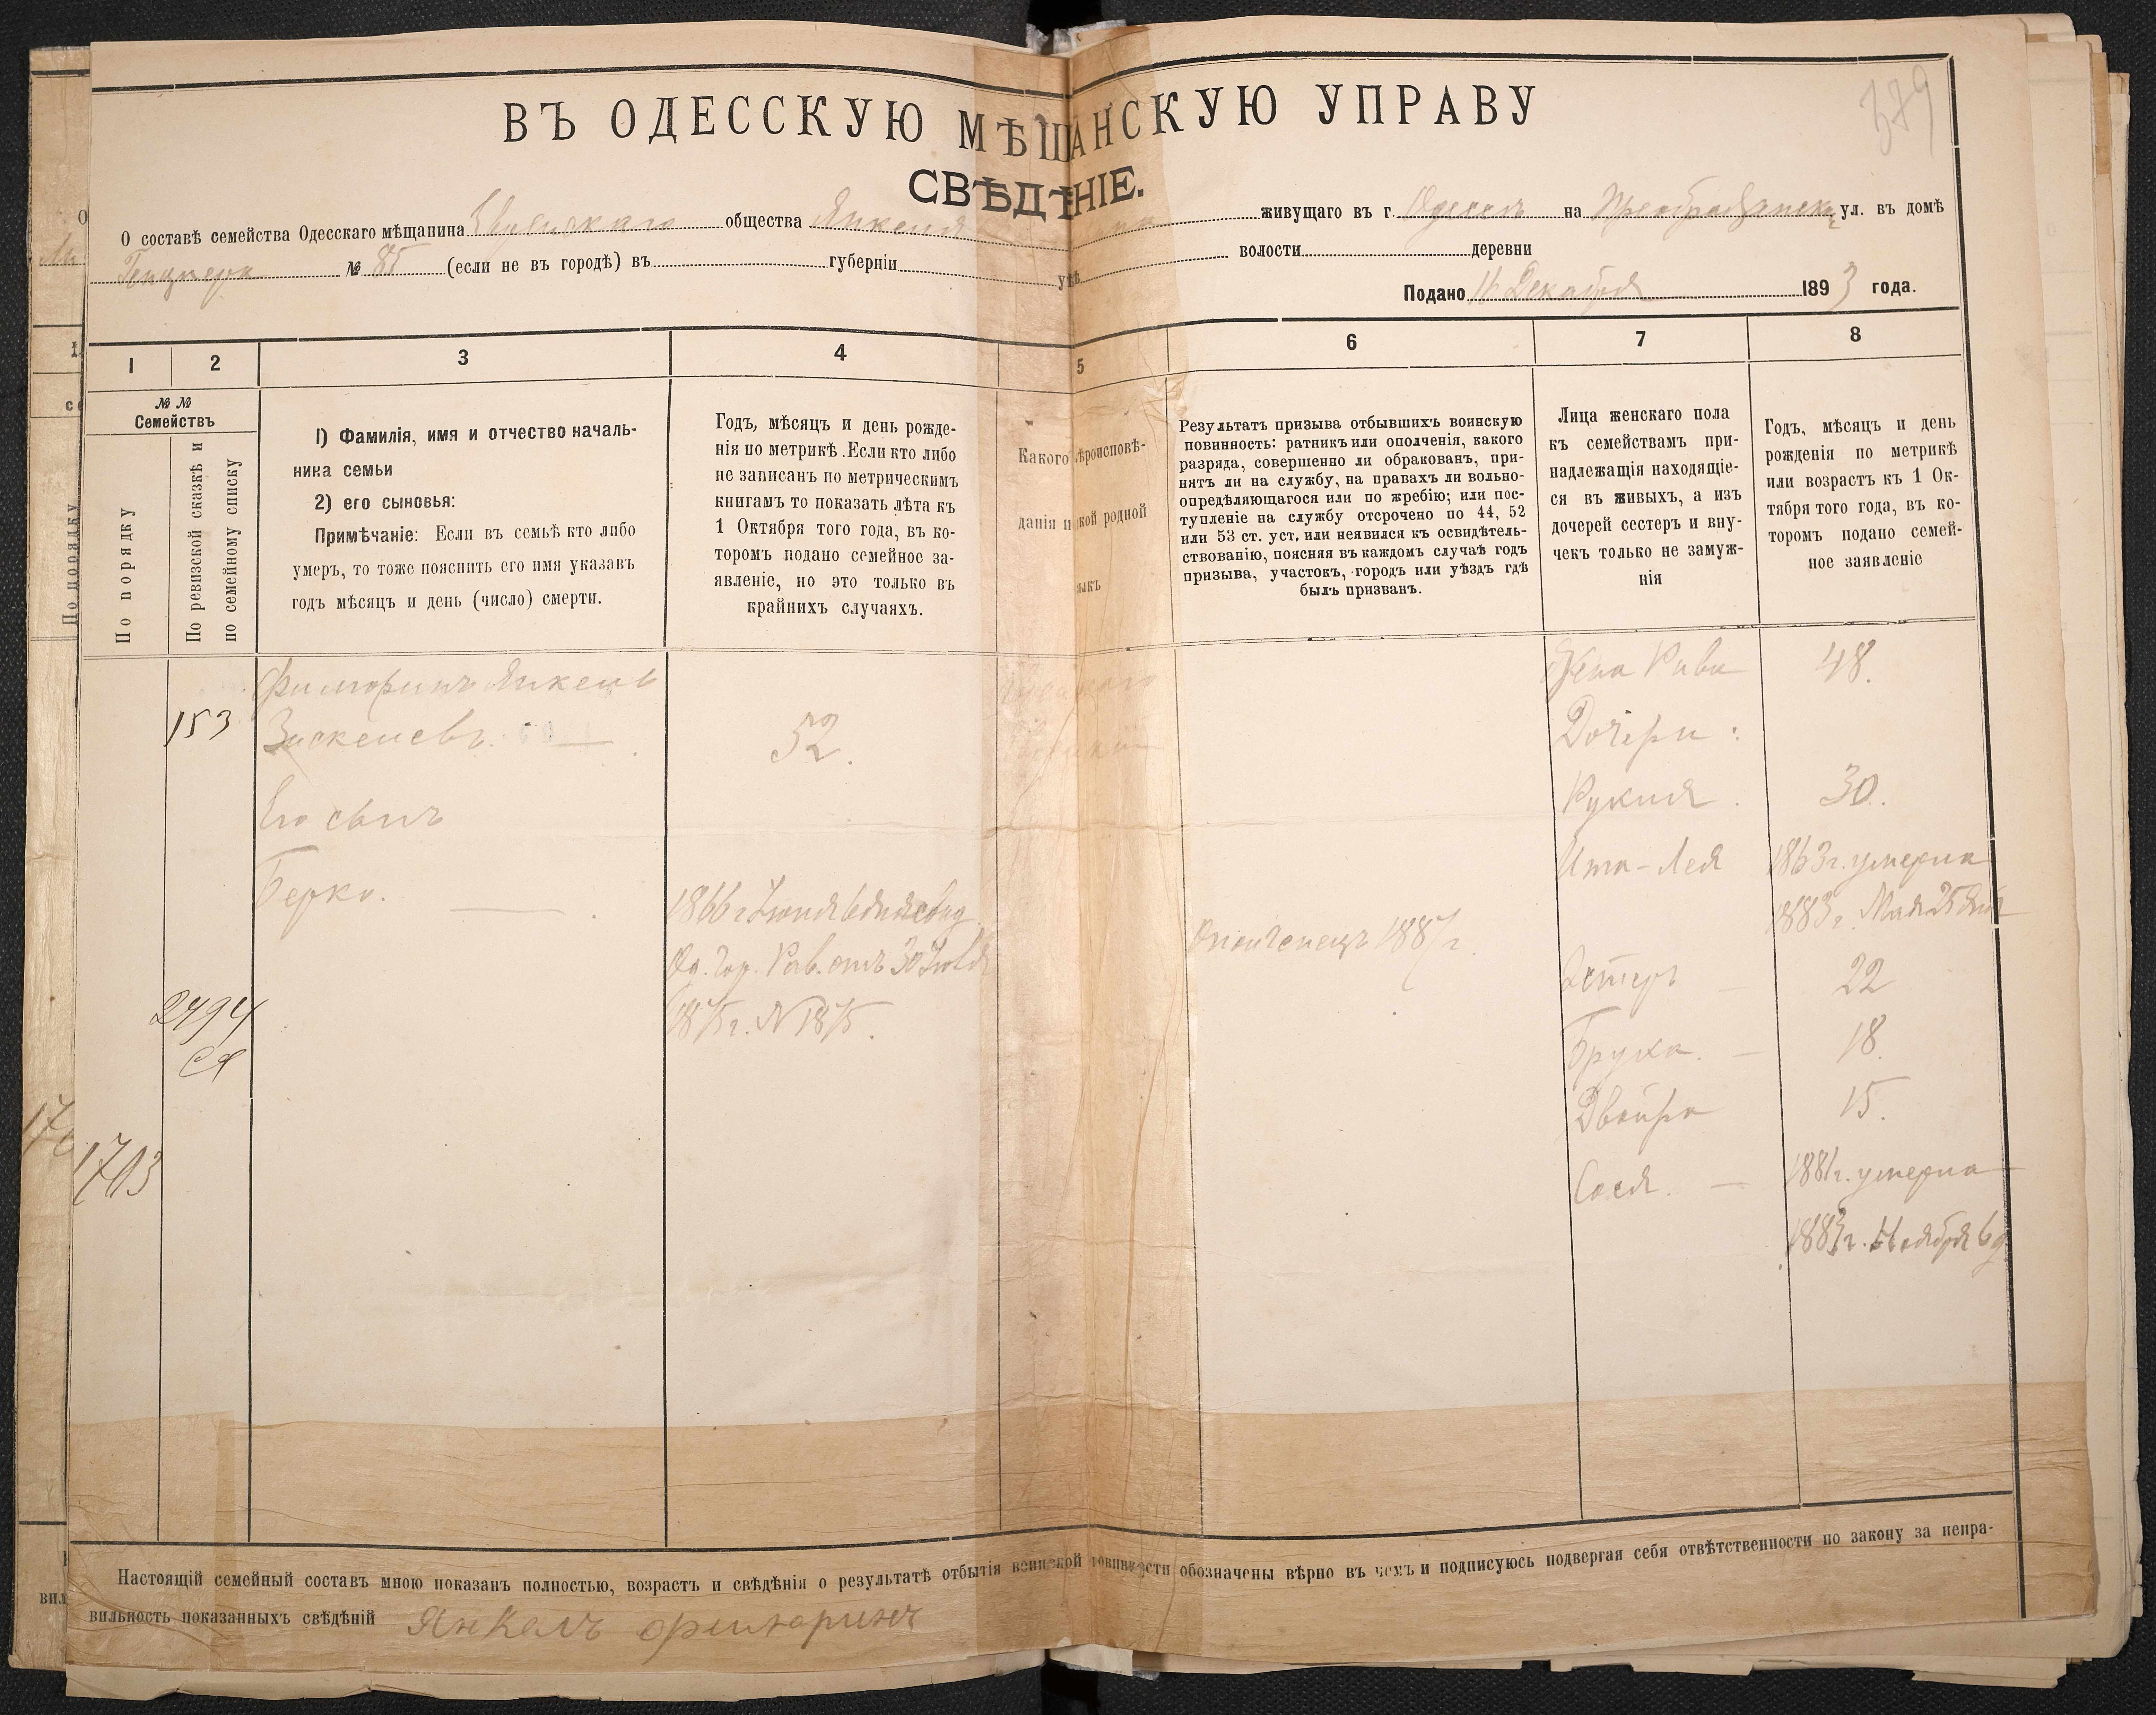 379
ВЪ ОДЕССКУЮ МѢЩАНСКУЮ УПРАВУ
СВѢДѢНІЕ.
О составѣ семейства Одесскаго мѣщанина Еврейскаго общества Янкеля живущаго въ г. Одессѣ на Преображенск ул. въ домѣ
№ 85 (если не въ городѣ) въ губерніи уѣз волости деревни
Подано 16 Декабря 1893 года.
1 2 3 4 5 6 7 8
№ №
Семействъ
По порядку
По ревизской сказкѣ и
по семейному списку
1) Фамилія, имя и отчество началь-
ника семьи
2) его сыновья:
Примѣчаніе: Если въ семьѣ кто либо
умеръ, то тоже пояснить его имя указавъ
годъ мѣсяцъ и день (число) смерти.
Годъ, мѣсяцъ и день рожде-
нія по метрикѣ. Если кто либо
не записанъ по метрическимъ
книгамъ то показать лѣта къ
1 Октября того года, въ ко-
торомъ подано семейное за-
явленіе, но это только въ
крайнихъ случаяхъ.
Какого вѣроисповѣ-
данія и какой родной
языкъ
Результатъ призыва отбывшихъ воинскую
повинность: ратникъ или ополченія, какого
разряда, совершенно ли обракованъ, при-
нятъ ли на службу, на правахъ ли вольно-
опредѣляющагося или по жребію; или пос-
тупленіе на службу отсрочено по 44, 52
или 53 ст. уст. или неявился къ освидѣтель-
ствованію, поясняя въ каждомъ случаѣ годъ
призыва, участокъ, городъ или уѣздъ гдѣ
былъ призванъ.
Лица женскаго пола
къ семействамъ при-
надлежащія находящіе-
ся въ живыхъ, а изъ
дочерей сестеръ и вну-
чекъ только не замуж-
нія
Годъ, мѣсяцъ и день
рожденія по метрикѣ
или возрастъ къ 1 Ок-
тября того года, въ ко-
торомъ подано семей-
ное заявленіе
153
2494
1703
Янкель
52.
Его сынъ
Берко.
1866 г Іюня 6 дня свид.
Од. Гор. Рав. отъ 30
1875 г. N 1875.
Ополченецъ 1887 г.
Жена Рива 48.
Дочери:
Рукля. 30.
Ита-Лея 1863 г. умерла
1883 г. Мая 25 дня
Эстеръ 22
Бруха. 18.
Двойра 15.
Сося. 1881 г. умерла
1883 г. Ноября 6 д.
Настоящій семейный составъ мною показанъ полностью, возрастъ и свѣдѣнія о результатѣ отбытія воинской повинности обозначены вѣрно въ чемъ и подписуюсь подвергая себя отвѣтственности по закону за непра-
вильность показанныхъ свѣдѣній Янкель